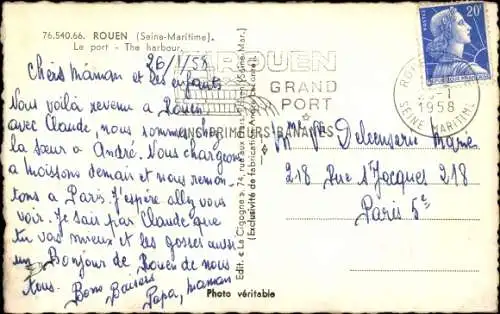 76.540.66. ROUEN (Seine-Maritime).
Le port - The harbour.
26/1/58
Chers Maman et les enfants
Nous voilà revenu a Rouen
avec Claude, nous sommes chez
la sœur a André. Nous chargeons
a moissons demain et nous remon-
tons a Paris. J'espère allez vous
voir. Je sais par Claude que
tu vas mieux et les gosses aussi
un Bonjour de Rouen de nous
tous. Bons Baisers
Papa, Maman
Edit. « La Cigogne », 74, rue
(Exclusivité de fabrication
Photo véritable
ROUEN
GRAND
PORT
PRIMEURS BANANES
POSTES
20F
1958
SEINE MARITIME
Marie
218 Rue St Jacques 218
Paris 5e